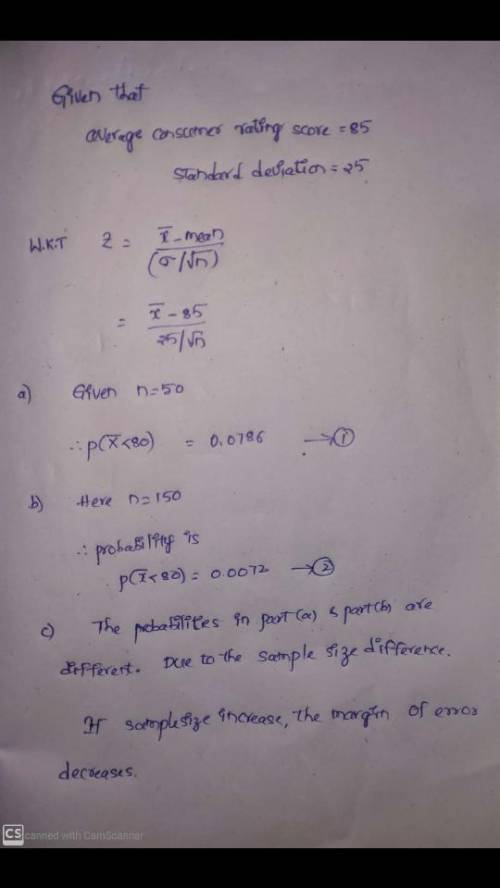 Given that
average consumer rating score = 85
standard deviation = 25
W.K.T Z = x̄ - mean / (σ/√n)
= x̄ - 85 / 25/√n
a) Given n=50
∴ p(x̄<80) = 0.0786 → ①
b) Here n=150
∴ probability is
p(x̄<80) = 0.0072 → ②
c) The probabilites in part(a) & part(b) are
different. Due to the sample size difference.
If samplesize increase, the margin of error
decreases.
CS canned with CamScanner